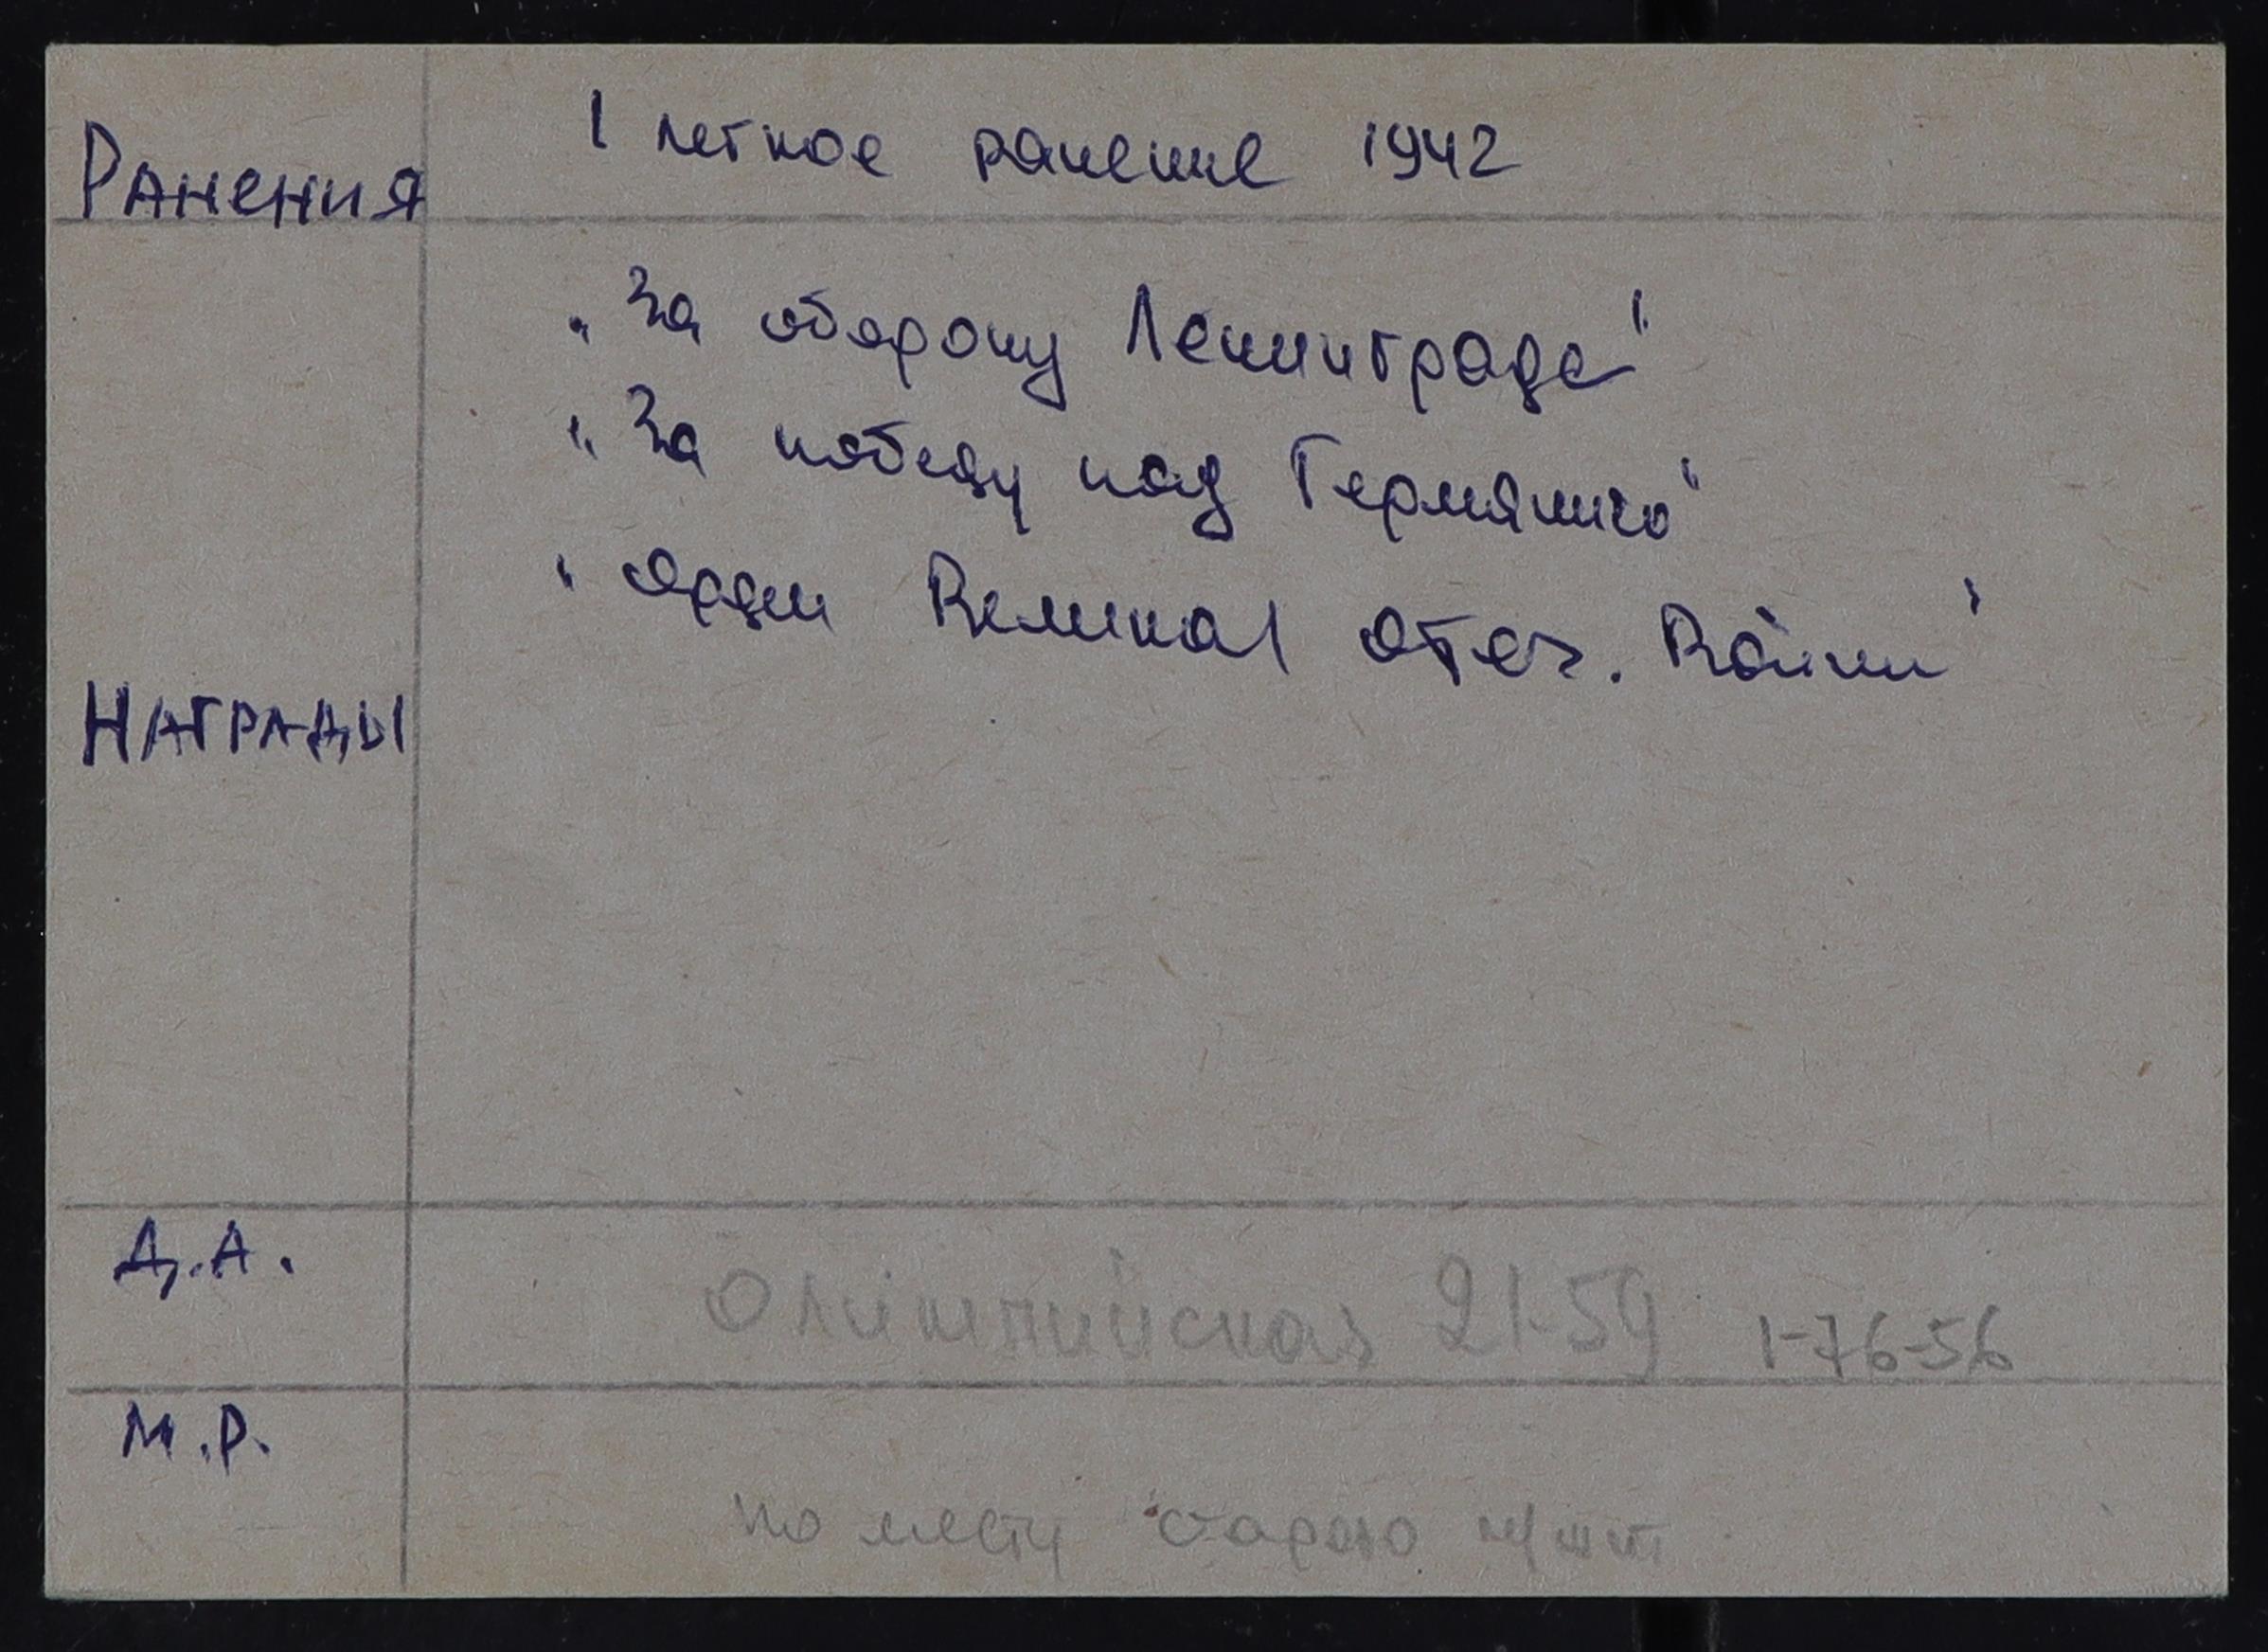 Ранения
1 легкое ранение 1942
"За оборону Ленинграда"
"За победу над Германией"
"Орден Великой отеч. Войны"
Награды
Д.А.
Олимпийская 21-59 1-76-56
М.Р.
по месту старого